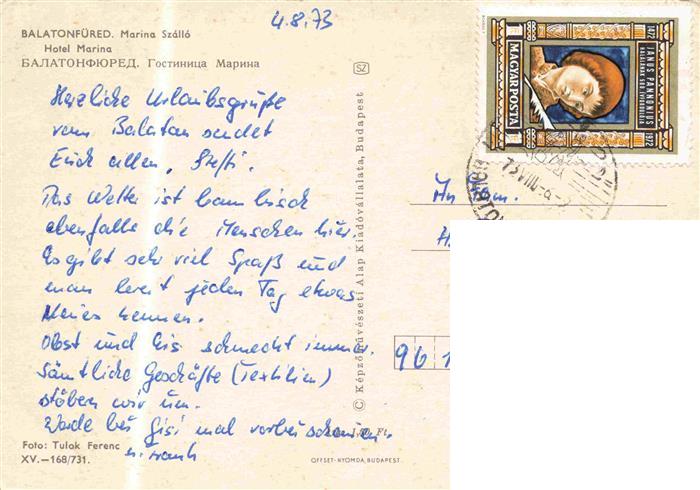 4.8.73
BALATONFÜRED. Marina Szálló
Hotel Marina
БАЛАТОНФЮРЕД. Гостиница Марина
SZ
1472
JANUS PANNONIUS
HALÁLÁNAK 500. ÉVFORDULÓJA
1972
MAGYAR POSTA
1 Ft
Herzliche Urlaubsgrüße
vom Balaton sendet
Euch allen, Steffi.
Das Wetter ist
ebenfalls die Menschen hier.
Es gibt sehr viel Spaß und
man lernt jeden Tag etwas
Neues kennen.
Obst und Eis schmeckt immer.
Sämtliche Geschäfte (Textilien)
stöbern wir um.
Werde bei Gisi mal vorbeischauen.
An Fam.
961
© Képzőművészeti Alap Kiadóvállalata, Budapest
Ft
Foto: Tulok Ferenc
XV.—168/731.
OFFSET-NYOMDA, BUDAPEST.